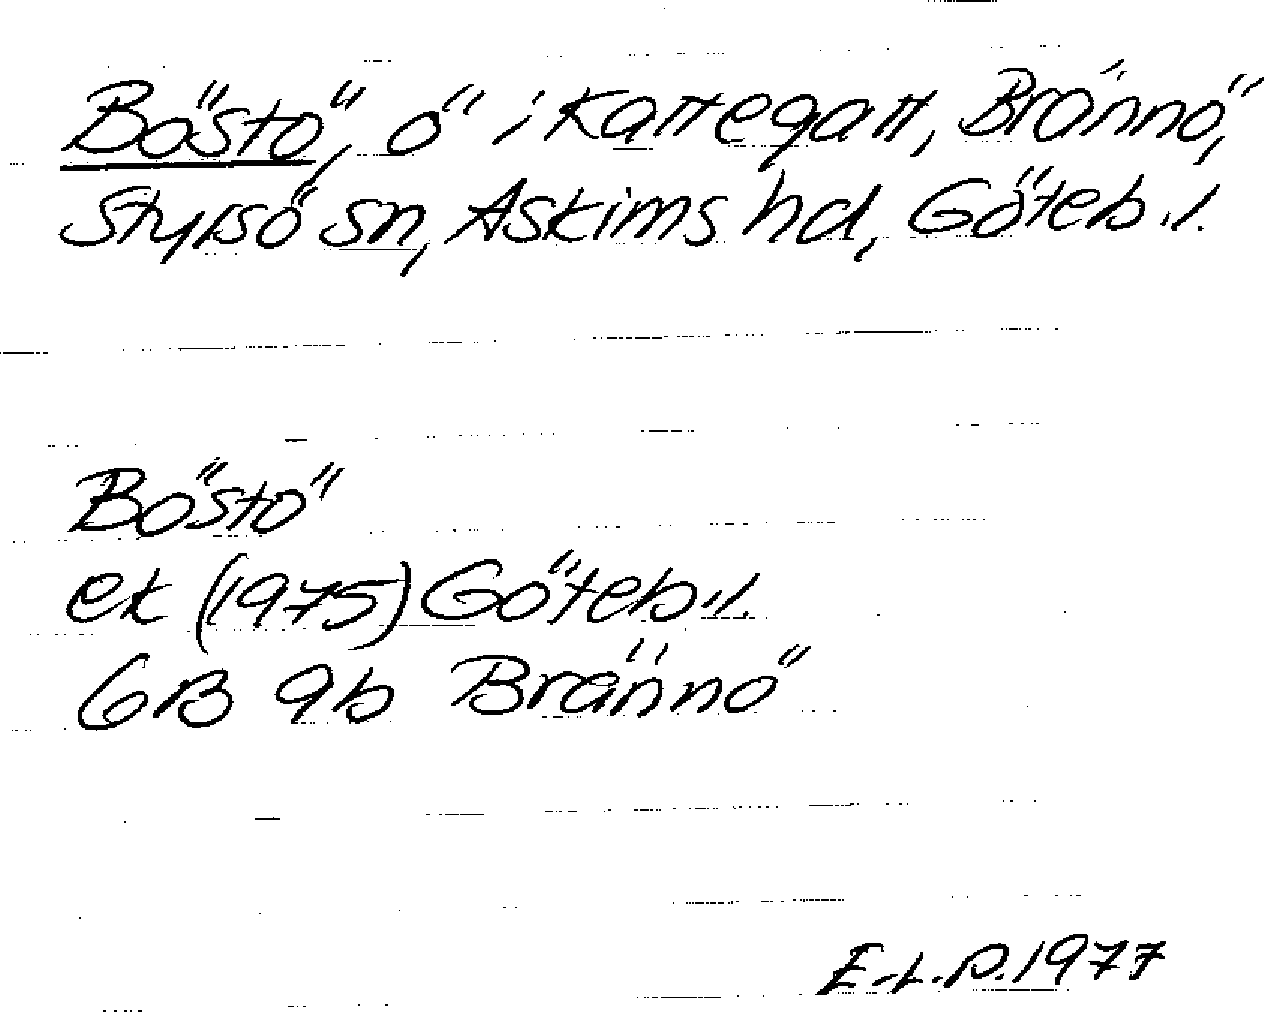 Böstö, ö i Kattegatt, Brännö,
Styrsö sn, Askims hd, Göteb.l.
Böstö
ek (1975) Göteb.l.
6B 9b Brännö
E.L.P. 1977